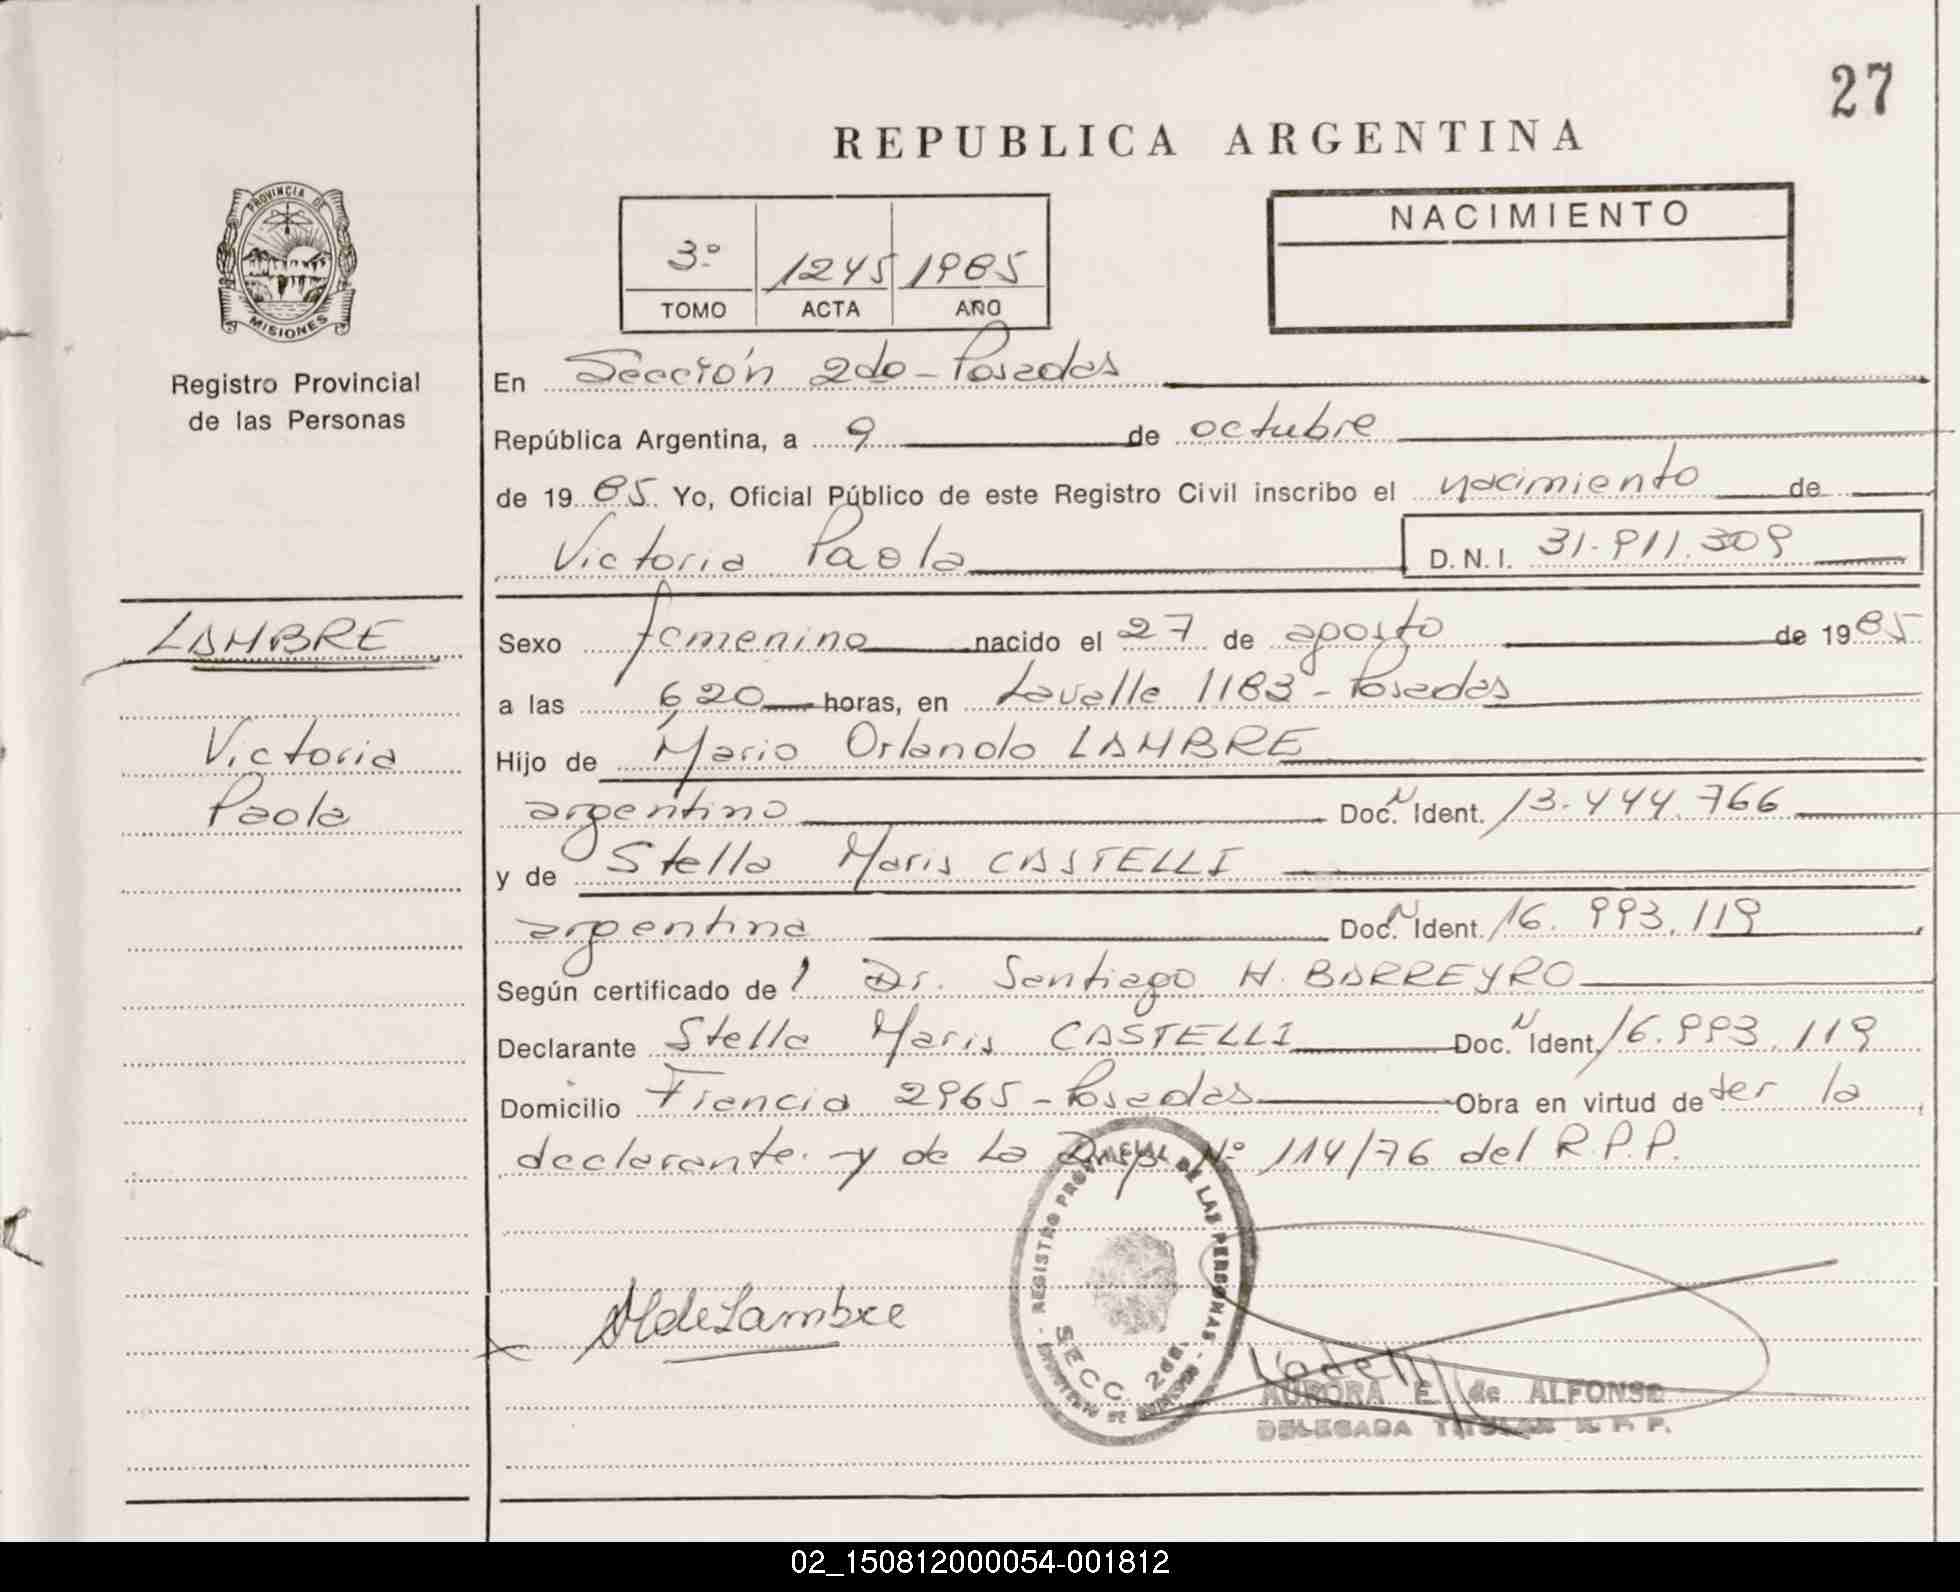 27
REPUBLICA ARGENTINA
PROVINCIA DE
MISIONES
Registro Provincial
de las Personas
3º 1245 1985
TOMO ACTA AÑO
NACIMIENTO
En Sección 2da - Posadas
República Argentina, a 9 de octubre
de 1985 Yo, Oficial Público de este Registro Civil inscribo el nacimiento de
Victoria Paola D.N.I. 31.911.309
LAMBRE
Victoria
Paola
Sexo femenino nacido el 27 de agosto de 1985
a las 6,20 horas, en Lavalle 1183 - Posadas
Hijo de Mario Orlando LAMBRE
argentino Doc. N Ident. 13.444.766
y de Stella Maris CASTELLI
argentina Doc. N Ident. 16.993.119
Según certificado de l Dr. Santiago H. BARREYRO
Declarante Stella Maris CASTELLI Doc. N Ident. 16.993.119
Domicilio Francia 2965 - Posadas Obra en virtud de ser la
declarante. y de La Disp. Nº 114/76 del R.P.P.
REGISTRO PROVINCIAL DE LAS PERSONAS
SECC. 2da.
de Lambre
AURORA E. de ALFONSO
DELEGADA TITULAR R. P. P.
02_150812000054-001812